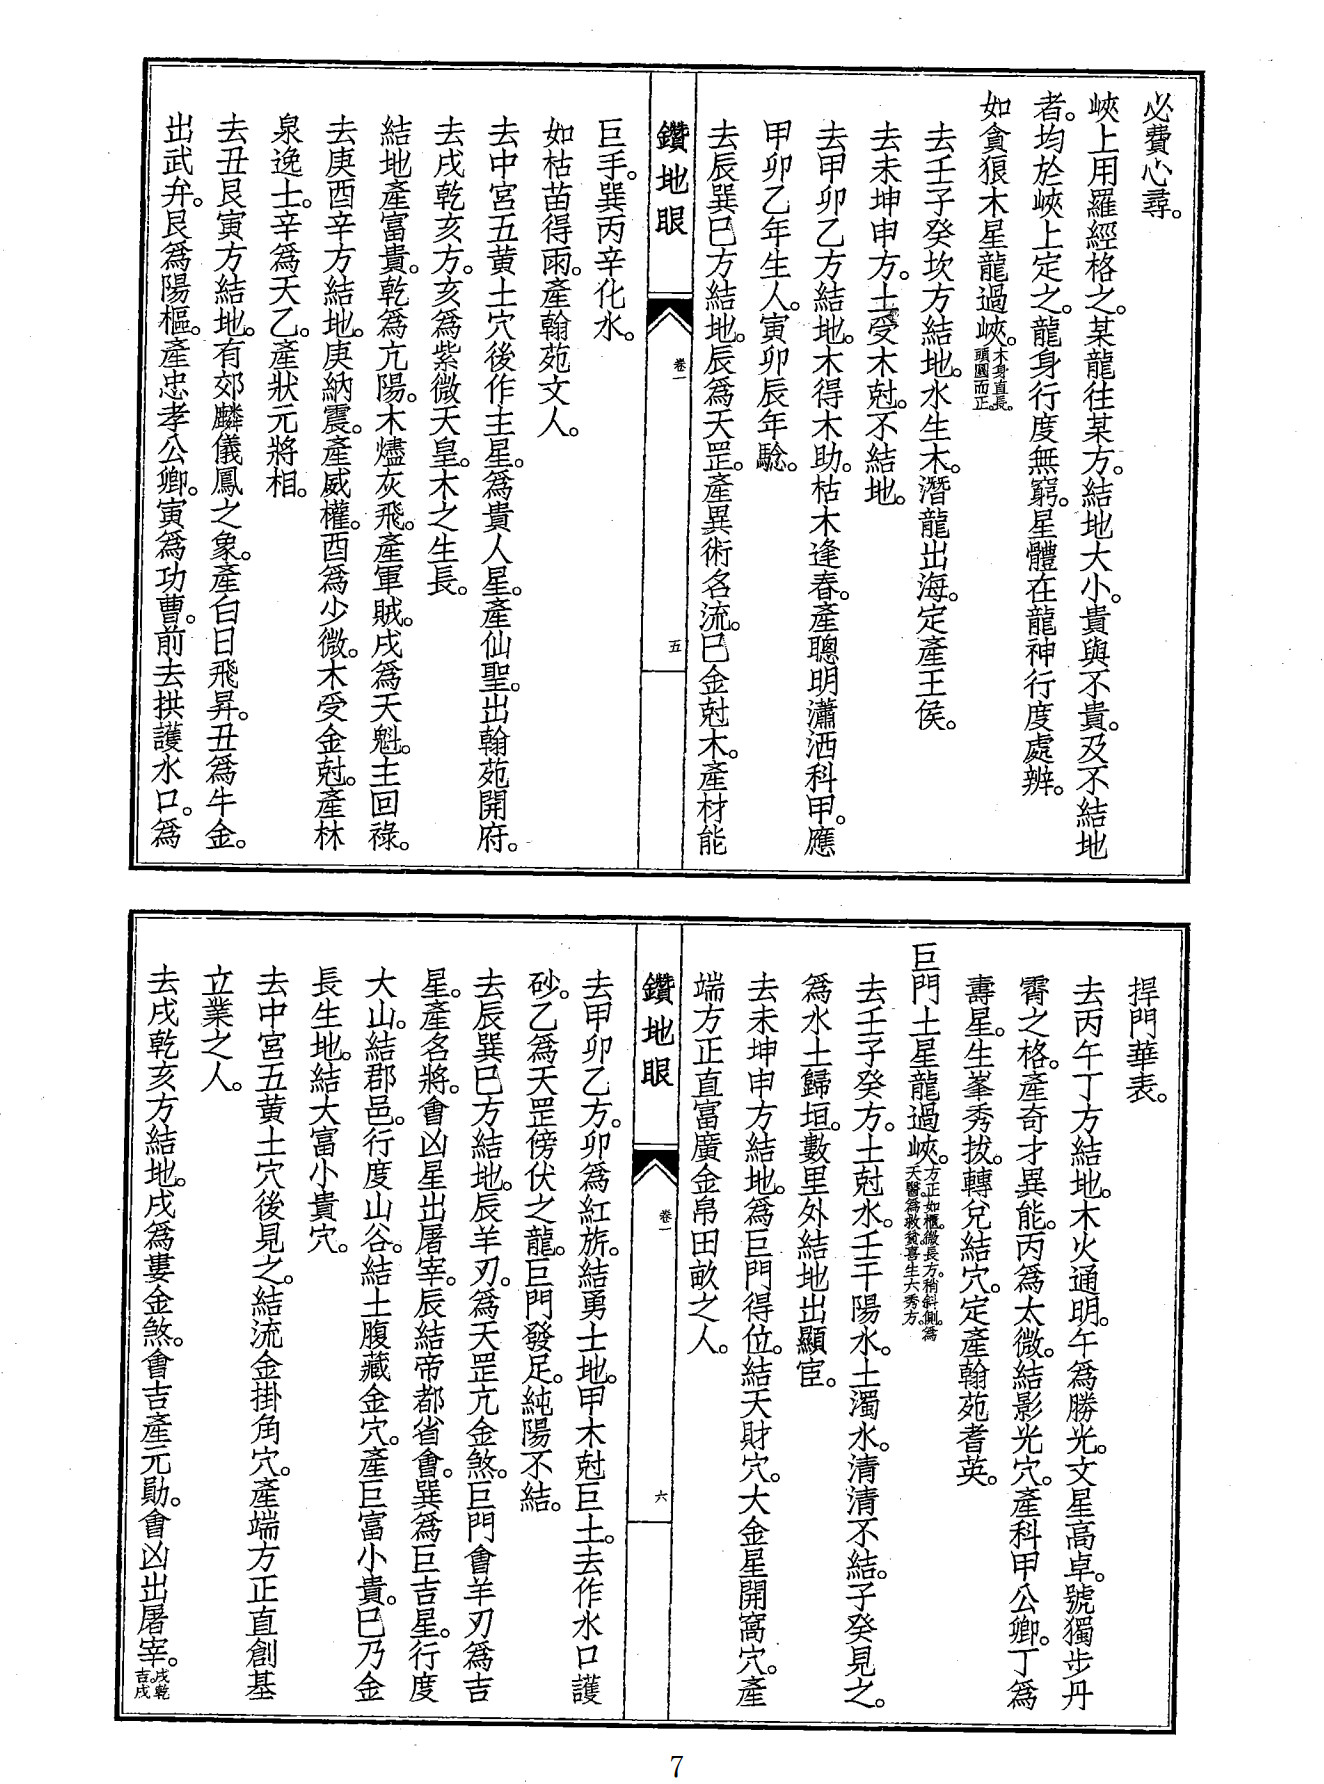 必費心尋。
峽上用羅經格之。某龍往某方。結地大小。貴與不貴。及不結地
者。均於峽上定之。龍身行度無窮。星體在龍神行度處辨。
如貪狼木星龍過峽。木身直長。頭圓而正。
去壬子癸坎方結地。水生木。潛龍出海。定產王侯。
去未坤申方。土受木尅。不結地。
去甲卯乙方結地。木得木助。枯木逢春。產聰明瀟洒科甲。應
甲卯乙年生人。寅卯辰年驗。
去辰巽巳方結地。辰爲天罡。產異術名流。巳金尅木。產材能
鑽地眼
卷一
五
巨手。巽丙辛化水。
如枯苗得雨。產翰苑文人。
去中宮五黃土穴後作主星。爲貴人星。產仙聖。出翰苑開府。
去戌乾亥方。亥爲紫微天皇。木之生長。
結地產富貴。乾爲亢陽。木燼灰飛。產軍賊。戌爲天魁。主回祿。
去庚酉辛方結地。庚納震。產威權。酉爲少微。木受金尅。產林
泉逸士。辛爲天乙。產狀元將相。
去丑艮寅方結地。有郊麟儀鳳之象。產白日飛昇。丑爲牛金。
出武弁。艮爲陽樞。產忠孝公卿。寅爲功曹。前去拱護水口。爲
捍門華表。
去丙午丁方結地。木火通明。午爲勝光。文星高卓。號獨步丹
霄之格。產奇才異能。丙爲太微。結影光穴。產科甲公卿。丁爲
壽星。生峯秀拔。轉兌結穴。定產翰苑耆英。
巨門土星龍過峽。方正如櫃。微長方。稍斜側。爲天醫爲救貧喜生六秀方。
去壬子癸方。土尅水。壬干陽水。土濁水。清清不結。子癸見之。
爲水土歸垣。數里外結地出顯宦。
去未坤申方結地。爲巨門得位。結天財穴。大金星開窩穴。產
端方正直富廣金帛田畝之人。
鑽地眼
卷一
六
去甲卯乙方。卯爲紅旂。結勇士地。甲木尅巨土。去作水口護
砂。乙爲天罡傍伏之龍。巨門發足。純陽不結。
去辰巽巳方結地。辰羊刃。爲天罡亢金煞。巨門會羊刃爲吉
星。產名將。會凶星出屠宰。辰結帝都省會。巽爲巨吉星。行度
大山。結郡邑。行度山谷。結土腹藏金穴。產巨富小貴。巳乃金
長生地。結大富小貴穴。
去中宮五黃土穴後見之。結流金掛角穴。產端方正直創基
立業之人。
去戌乾亥方結地。戌爲婁金煞。會吉產元勛。會凶出屠宰。戌乾吉戌
7